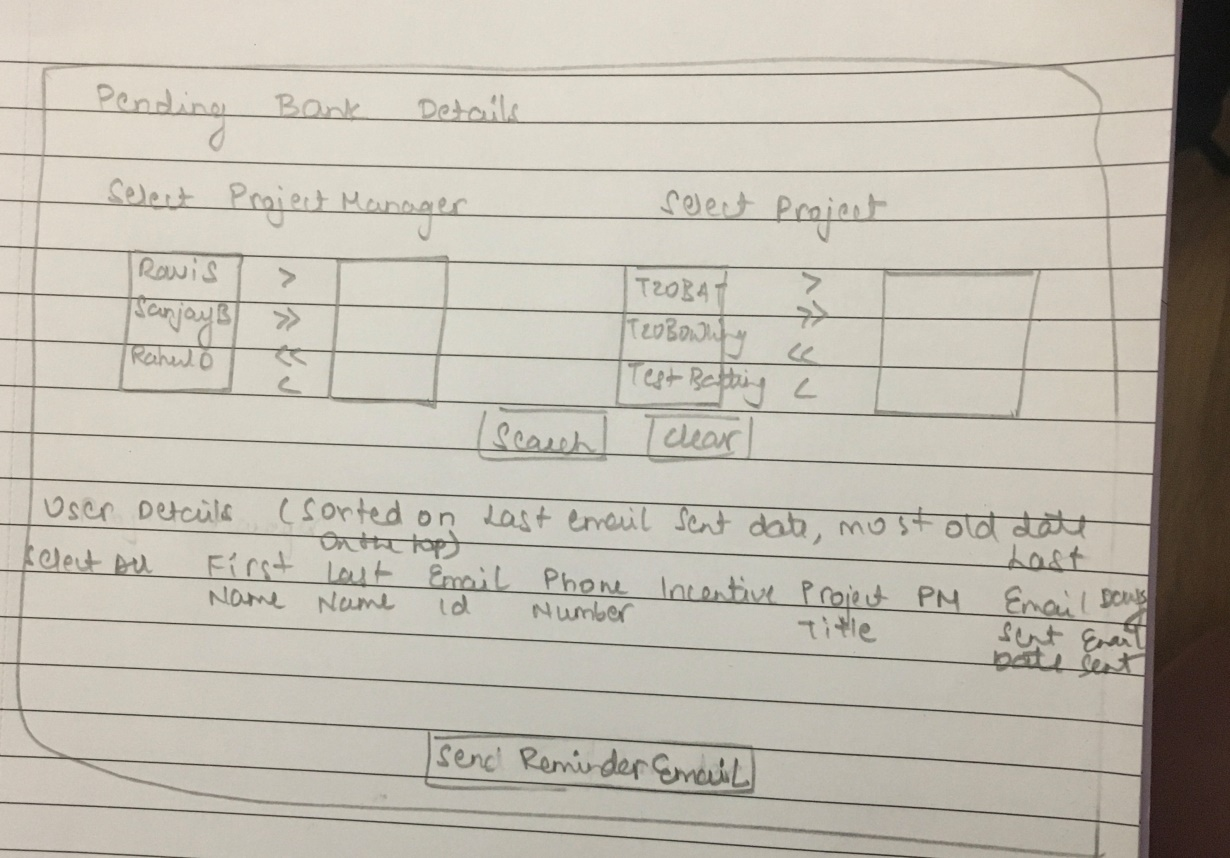 Pending Bank Details
Select Project Manager Select Project
RaviS > T20BAT >
SanjayB >> T20Bowling >>
RahulD << Test Batting <<
< <
Search Clear
User Details (Sorted on Last email sent date, most old date
on the top)
Select All First Name Last Name Email Id Phone Number Incentive Project Title PM Last Email Sent Date Days Email Sent
Send Reminder Email